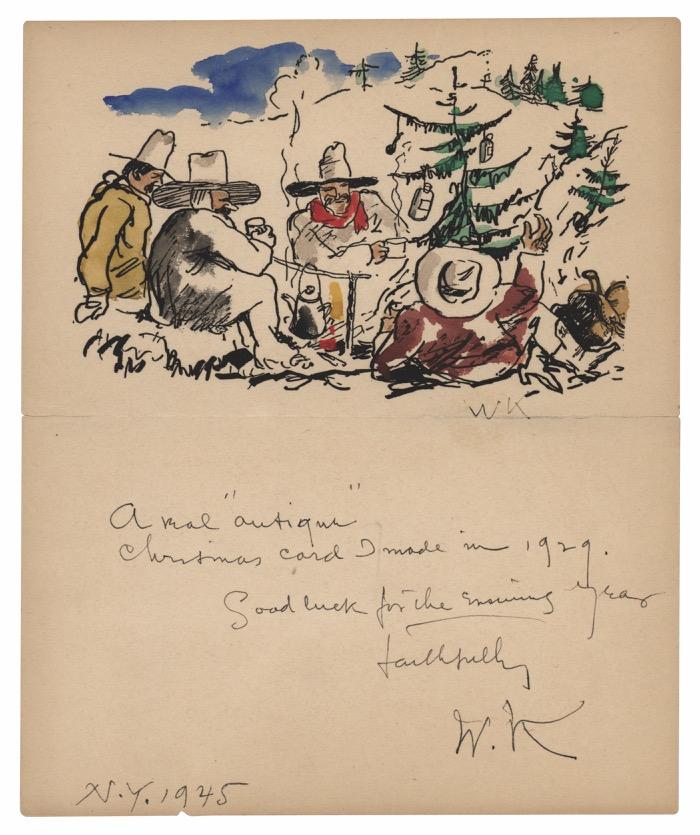 WK
A real "antique"
Christmas card I made in 1929.
Good luck for the ensuing year
faithfully
W.K
N.Y. 1945